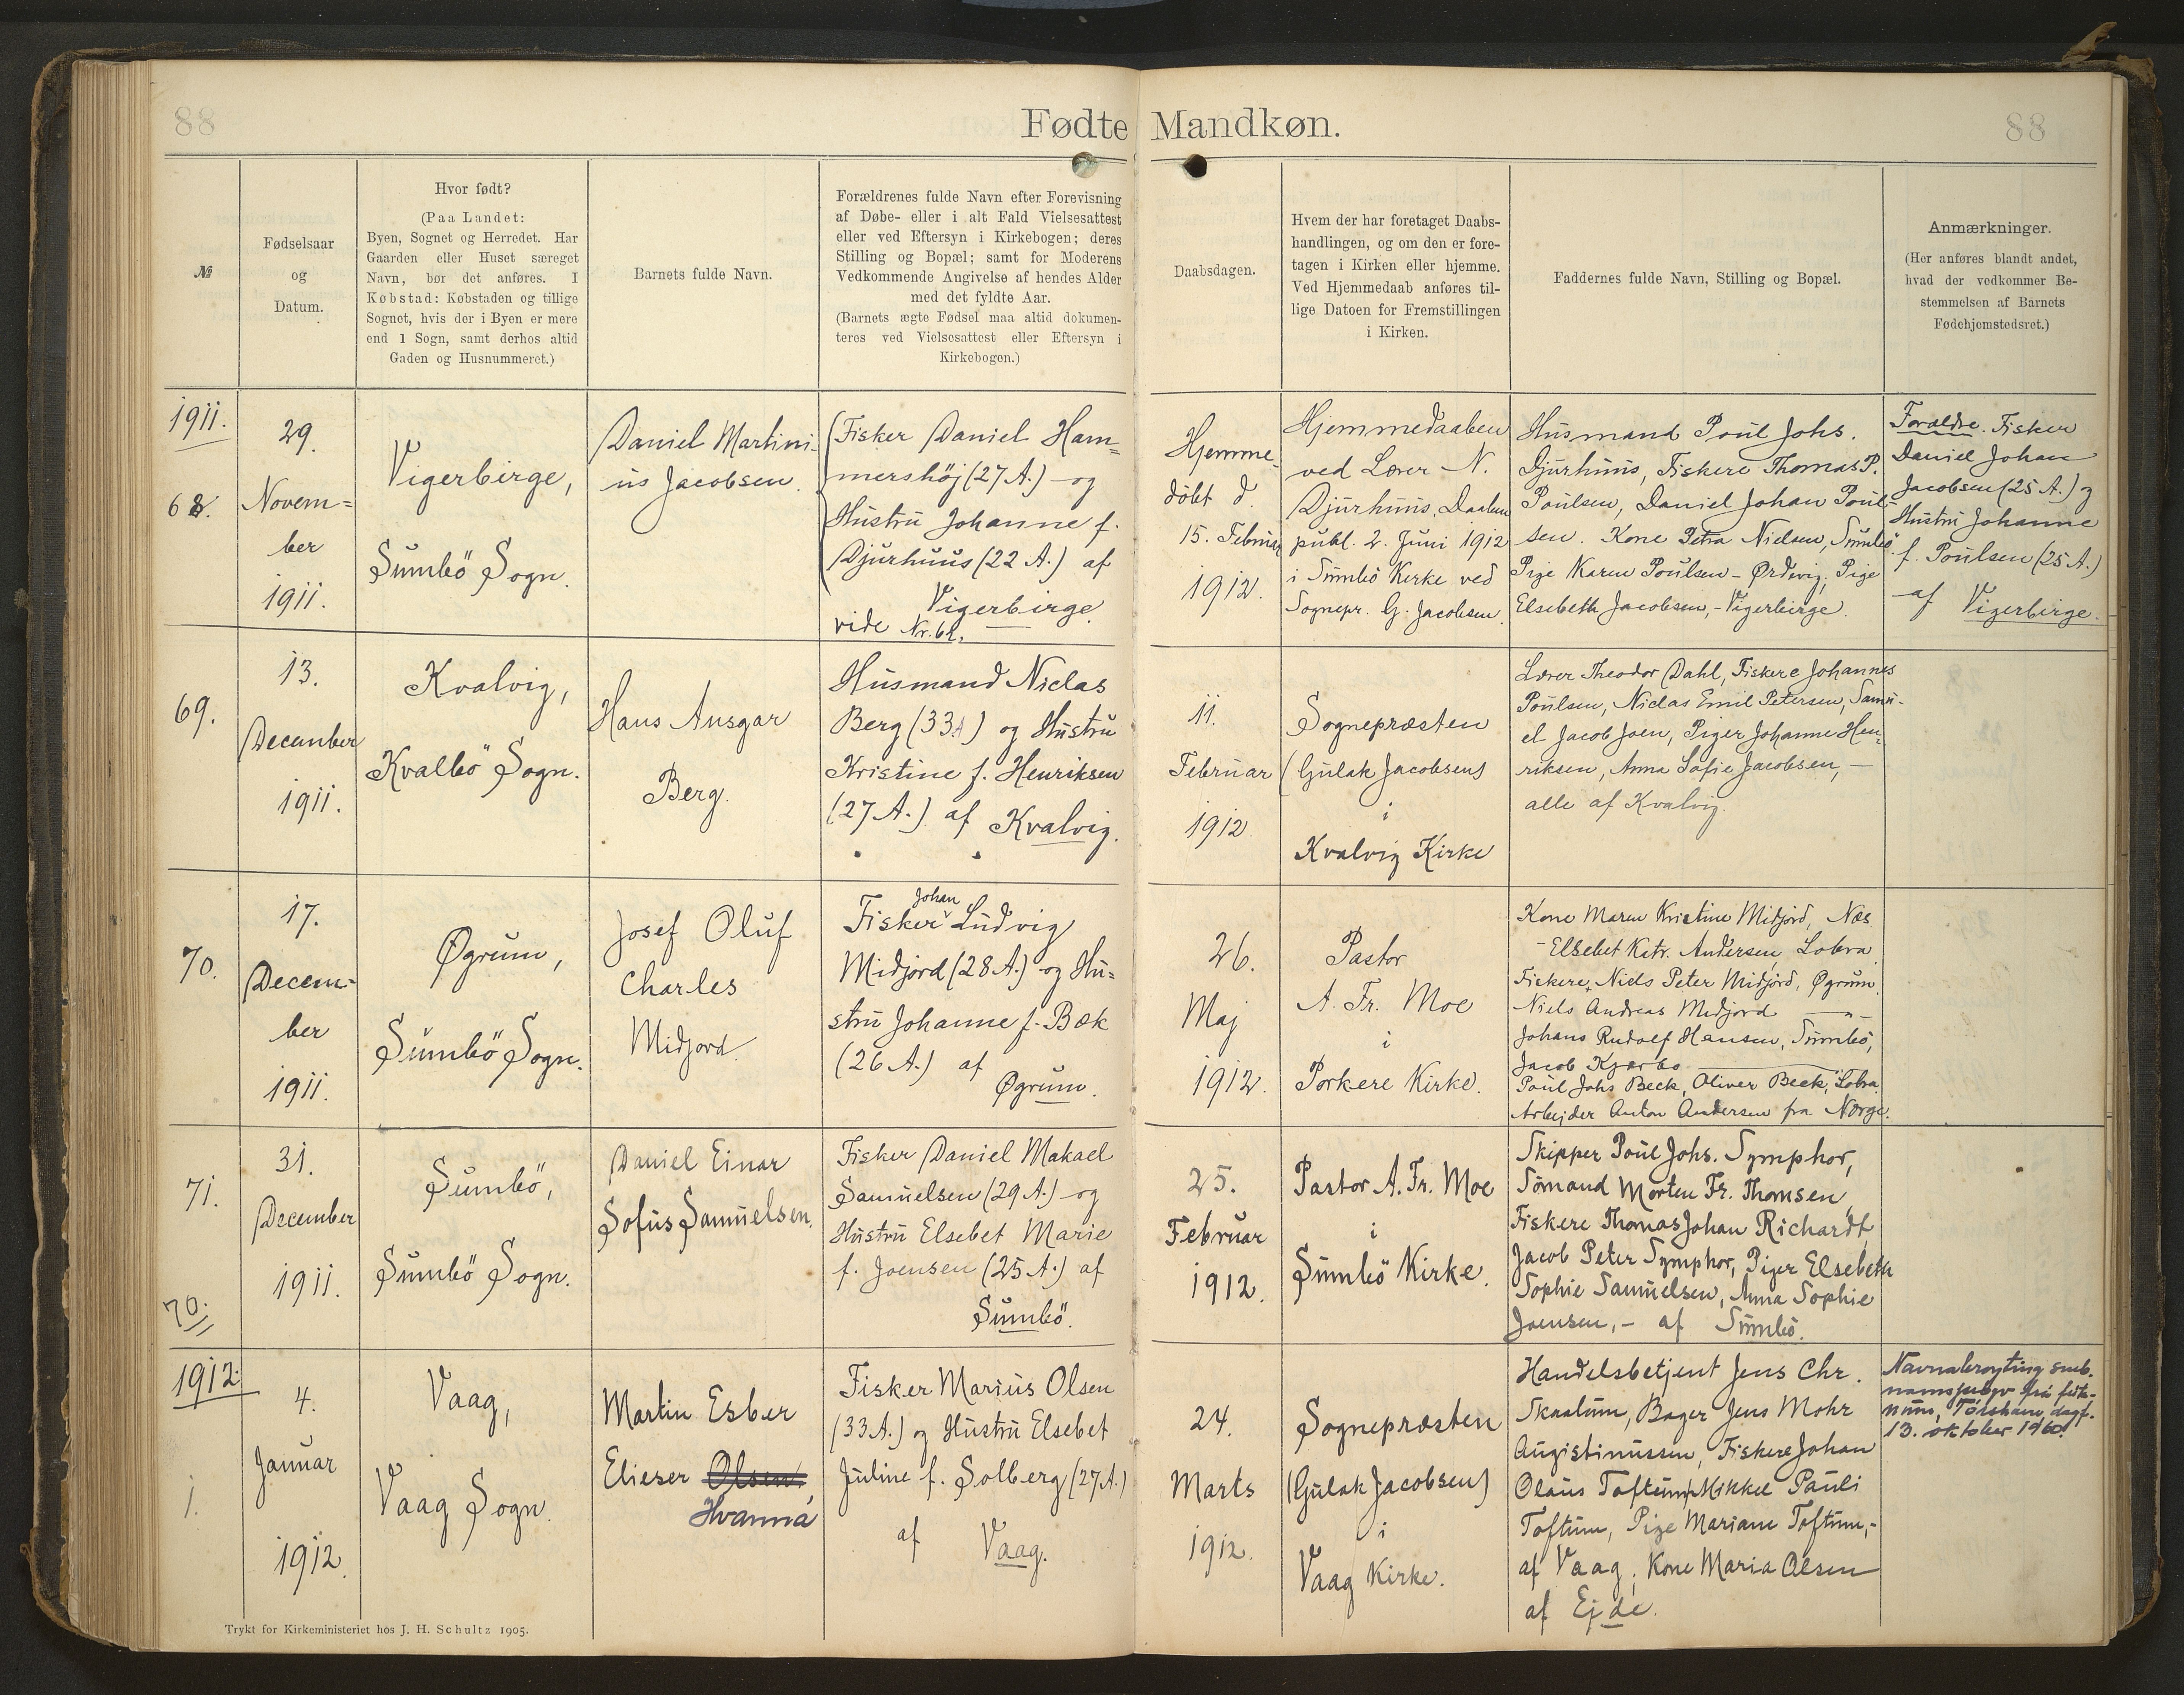 88
Fødte Mandkøn.
88
№
Fødselsaar
og
Datum.
Hvor født?
(Paa Landet:
Byen, Sognet og Herredet. Har
Gaarden eller Huset særeget
Navn, bør det anføres. I
Købstad: Købstaden og tillige
Sognet, hvis der i Byen er mere
end 1 Sogn, samt derhos altid
Gaden og Husnummeret.)
Barnets fulde Navn.
Forældrenes fulde Navn efter Forevisning
af Døbe- eller i alt Fald Vielsesattest
eller ved Eftersyn i Kirkebogen; deres
Stilling og Bopæl; samt for Moderens
Vedkommende Angivelse af hendes Alder
med det fyldte Aar.
(Barnets ægte Fødsel maa altid dokumen-
teres ved Vielsesattest eller Eftersyn i
Kirkebogen.)
Daabsdagen.
Hvem der har foretaget Daabs-
handlingen, og om den er fore-
tagen i Kirken eller hjemme.
Ved Hjemmedaab anføres til-
lige Datoen for Fremstillingen
i Kirken.
Faddernes fulde Navn, Stilling og Bopæl.
Anmærkninger.
(Her anføres blandt andet,
hvad der vedkommer Be-
stemmelsen af Barnets
Fødehjemstedsret.)
1911.
68.
29.
Novem=
ber
1911.
Vigerbirge,
Sumbö Sogn.
Daniel Martini-
us Jacobsen.
Fisker Daniel Ham=
mershöj (27 A.) og
Hustru Johanne f.
Djurhuus (22 A.) af
Vigerbirge.
vide Nr.
Hjemme-
döbt d.
15. Februar
1912.
Hjemmedaaben
ved Lærer N.
Djurhuus, Daaben
publ. 2. Juni 1912
i Sumbö Kirke ved
Sognepr. G. Jacobsen.
Husmand Poul Johs.
Djurhuus, Fiskere Thomas P.
Poulsen, Daniel Johan Poul-
sen. Kone Petra Nielsen, Sumbö.
Pige Karen Poulsen - Ørdevig, Pige
Elsebeth Jacobsen, - Vigerbirge.
Forældre. Fisker
Daniel Johan
Jacobsen (25 A.) og
Hustru Johanne
f. Poulsen (25 A.)
af Vigerbirge.
69.
13.
December
1911.
Kvalvig,
Kvalbö Sogn.
Hans Ansgar
Berg.
Husmand Niclas
Berg (33 A) og Hustru
Kristine f. Henriksen
(27 A.) af Kvalvig.
11.
Februar
1912
Sognepræsten
(Gulak Jacobsen)
i
Kvalvig Kirke
Lærer Theodor Dahl, Fiskere Johannes
Poulsen, Niclas Emil Petersen, Samu-
el Jacob Joen, Piger Johanne Hen-
riksen, Anna Sofie Jacobsen, -
alle af Kvalvig.
70.
17.
Decem-
ber
1911.
Øgrum,
Sumbö Sogn.
Josef Oluf
Charles
Midjord.
Johan
Fisker Ludvig
Midjord (28 A.) og Hu=
stru Johanne f. Bæk
(26 A.) af
Øgrum.
26.
Maj
1912.
Pastor
A. Fr. Moe
i
Porkere Kirke.
Kone Maren Kristine Midjord, Næs
- Elsebet Katr. Andersen, Lobra.
Fiskere, Niels Peter Midjord, Øgrum.
Niels Andreas Midjord —"—
Johans Rudolf Hansen, Sumbö,
Jacob Kjærbo
Poul Johs Beck, Oliver Beck, Lobra.
Arbejder Anton Andersen fra Norge.
71.
31.
December
1911.
70.
Sumbö,
Sumbö Sogn.
Daniel Einar
Sofus Samuelsen.
Fisker Daniel Makael
Samuelsen (29 A.) og
Hustru Elsebet Marie
f. Joensen (25 A.) af
Sumbö.
25.
Februar
1912.
Pastor A. Fr. Moe
i
Sumbö Kirke.
Skipper Poul Johs. Symphor,
Sömand Morten Fr. Thomsen,
Fiskere Thomas Johan Richardt,
Jacob Peter Symphor, Piger Elsebeth
Sophie Samuelsen, Anna Sophie
Joensen, - af Sumbö.
1912.
1.
4.
Januar
1912.
Vaag,
Vaag Sogn.
Martin Esber
Elieser Olsen,
Hvanná
Fisker Marius Olsen
(33 A.) og Hustru Elsebet
Juline f. Solberg (27 A.)
af Vaag.
24.
Marts
1912.
Sognepræsten
(Gulak Jacobsen)
i
Vaag Kirke.
Handelsbetjent Jens Chr.
Skaalum, Bager Jens Mohr
Augistinussen, Fiskere Johan
Olaus Toftum, Mikkel Pauli
Toftum, Pige Mariane Toftum,-
af Vaag, Kone Maria Olsen
af Ejde.
Navnabroyting smb.
frá fúta-
num, Tórshavn, dagf.
13. oktober 1960.
Trykt for Kirkeministeriet hos J. H. Schultz 1905.